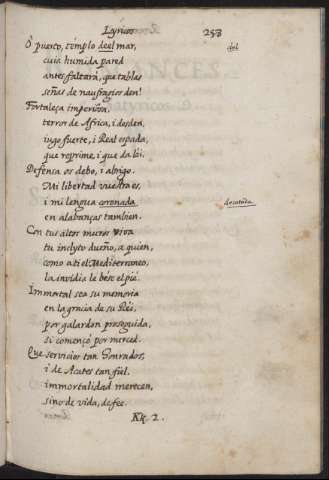 Lyricos 253
O puerto, templo deel mar, del
cuia humida pared
antes faltarà, que tablas
señas de naufragios den!
Fortaleza imperiosa,
terror de Africa, i desden,
iugo fuerte, i Real espada,
que reprime, i que da lei.
Defensa os debo, i abrigo.
Mi libertad vuestra es,
i mi lengua coronada desatada
en alabanças tambien.
Con tus altos muros viva
tu inclyto dueño, a quien,
como a ti el Mediterraneo,
la invidia le bese el pie.
Immortal sea su memoria
en la gracia de su Rei,
por galardon proseguida,
si començó por merced.
Que servicios tan honrados,
i de Acates tan fiel.
immortalidad merecen,
sino de vida, de fee.
Kk 2.